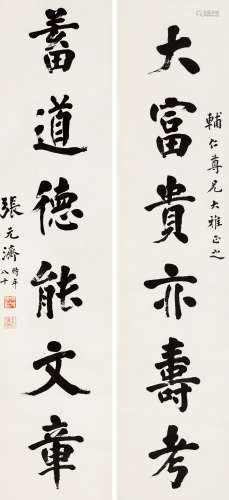 大富貴亦壽考
輔仁尊兄大雅正之
蓄道德能文章
張元濟時年八十